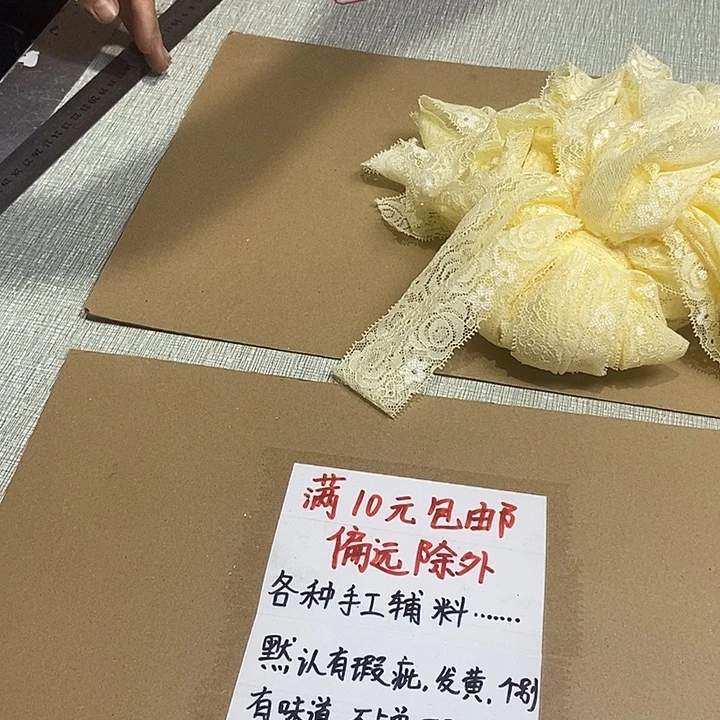 满10元包邮
偏远除外
各种手工辅料……
默认有瑕疵,发黄,个别
有味道